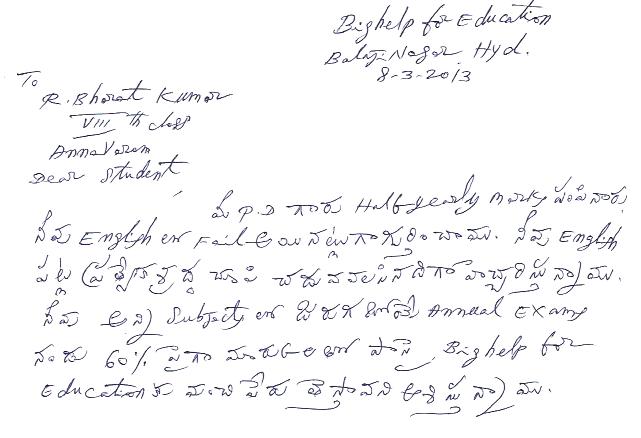 Bighelp for Education
Balaji Nagar Hyd.
8-3-2013
To
R. Bharat Kumar
VIII th class
Annavaram
Dear Student,
మీ P.D గారు Halfyearly marks పంపినారు.
నీవు English లో Fail అయినట్లుగా గుర్తించాము. నీవు English
పట్ల ప్రత్యేక శ్రద్ధ చూపి చదువవలసినదిగా హెచ్చరిస్తున్నాము.
నీవు అన్ని Subjects లో జరుగబోయే Annual Exams
నందు 60% పైగా మార్కులతో పాసై, Bighelp for
Education కు మంచి పేరు తెస్తావని ఆశిస్తున్నాము.